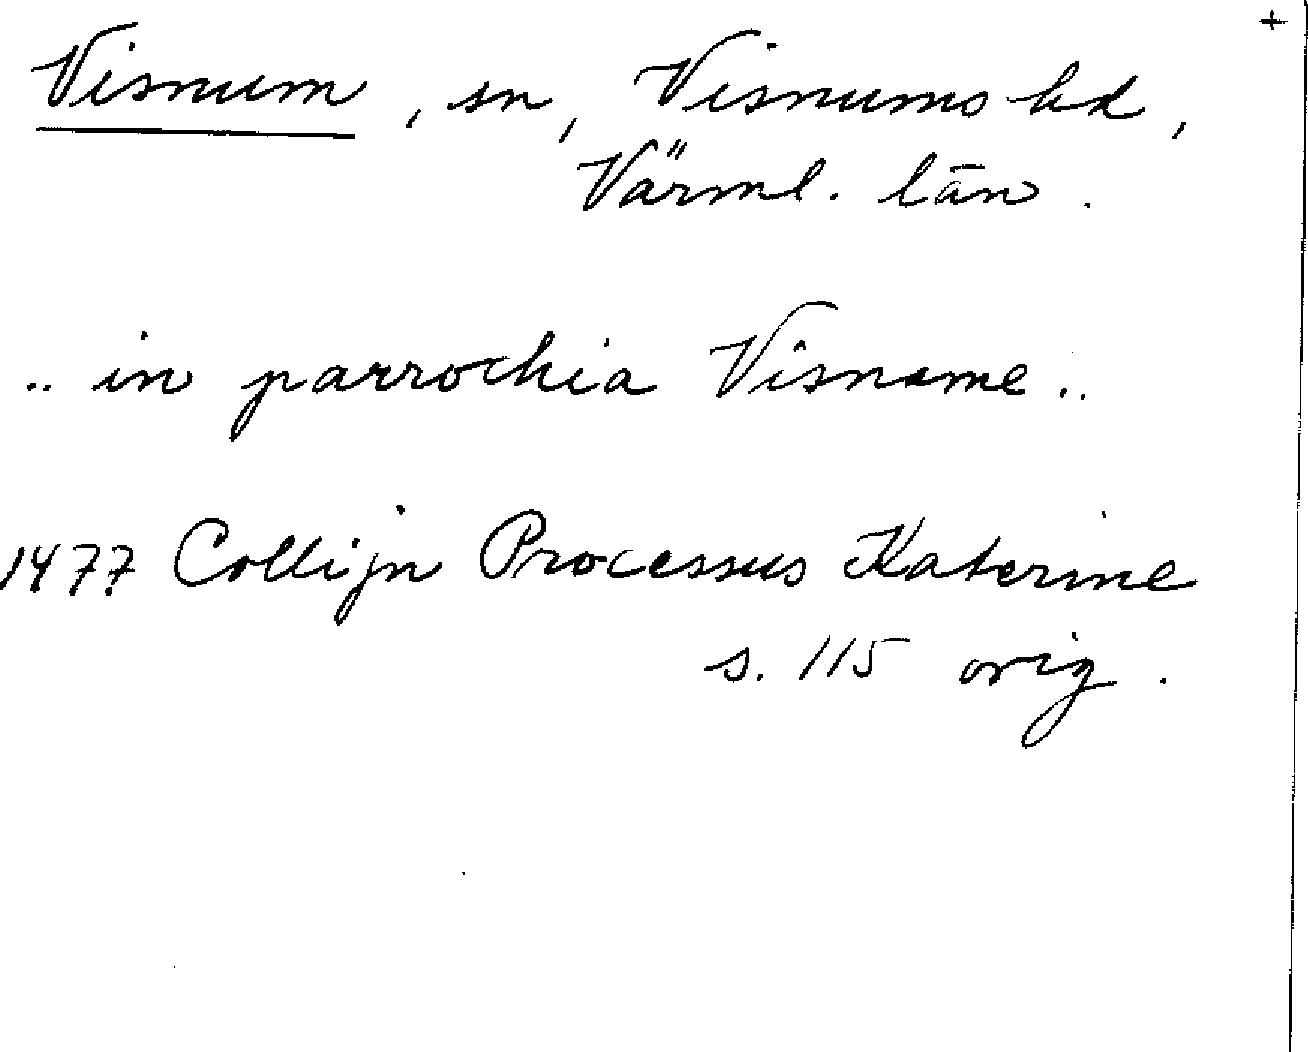 +
Visnum, sn, Visnums hd,
Värml. län.
.. in parrochia Visname ..
1477 Collijn Processus Katerine
s. 115 orig.